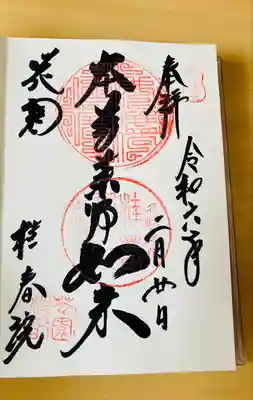 奉拝
令和六年
二月廿日
本尊薬師如来
花園
桂春院